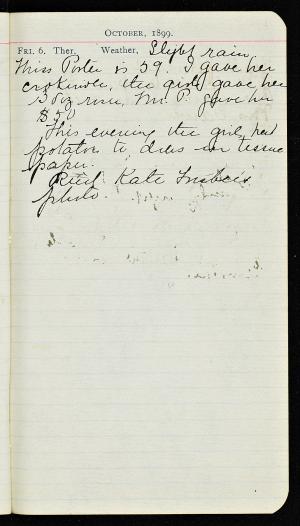 October, 1899.
Fri. 6. Ther. Weather, Slight rain
Miss Porter is 39. I gave her
crokinole, the girls gave her
3 doz roses, Mr. P. gave her
$50
This evening the girls had
potatoes to dress in tissue
paper.
Rec'd Kate
photo.